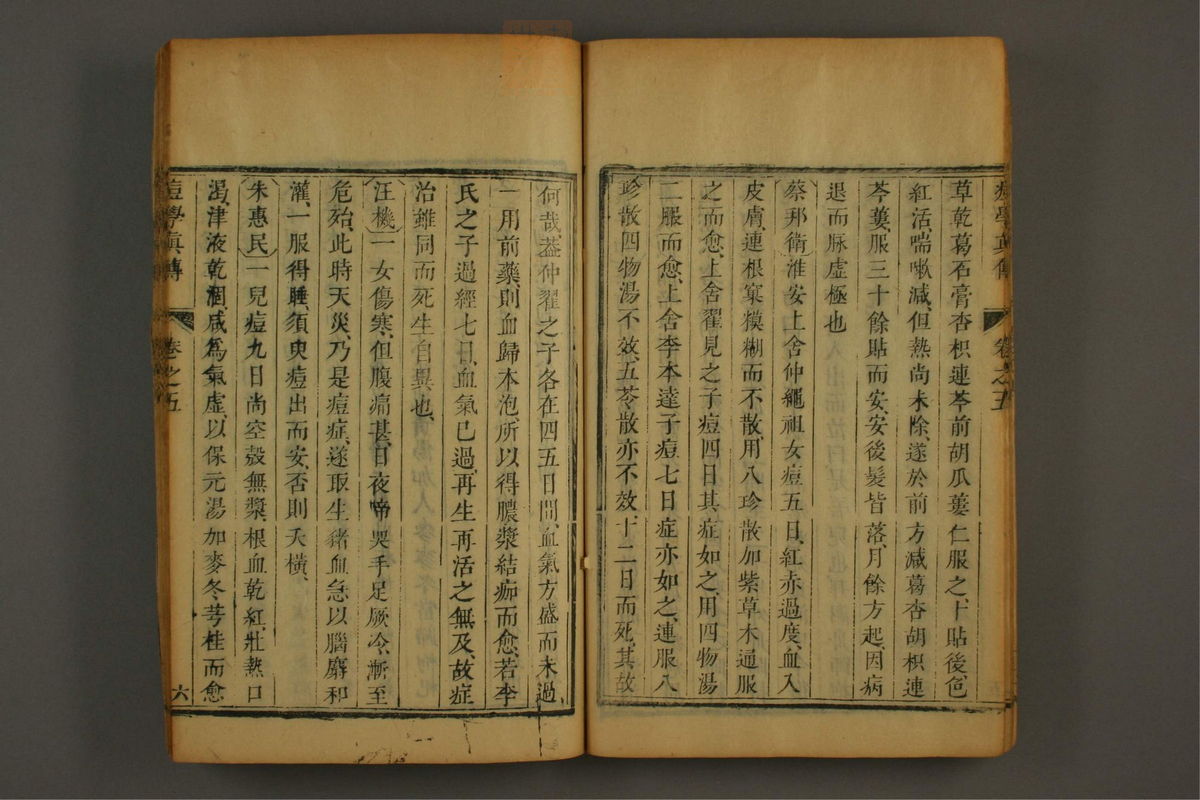 痘學真傳
卷之五
草乾葛石膏杏枳連芩前胡瓜蔞仁服之十貼後色
紅活喘嗽減但熱尚未除遂於前方減葛杏胡枳連
芩蔞服三十餘貼而安安後髮皆落月餘方起因病
退而脉虛極也
蔡邦衛淮安上舍仲繩祖女痘五日紅赤過度血入
皮膚連根窠模糊而不散用八珍散加紫草木通服
之而愈上舍翟見之子痘四日其症如之用四物湯
二服而愈上舍李本達子痘七日症亦如之連服八
珍散四物湯不效五苓散亦不效十二日而死其故
何哉葢仲翟之子各在四五日間血氣方盛而未過
一用前藥則血歸本泡所以得膿漿結痂而愈若李
氏之子過經七日血氣已過再生再活之無及故症
治雖同而死生自異也
汪機一女傷寒但腹痛甚日夜啼哭手足厥冷漸至
危殆此時天災乃是痘症遂取生豬血急以腦麝和
灌一服得睡須臾痘出而安否則夭橫
朱惠民一兒痘九日尚空殼無漿根血乾紅壯熱口
渴津液乾涸咸爲氣虛以保元湯加麥冬芎桂而愈
痘學真傳
卷之五
六